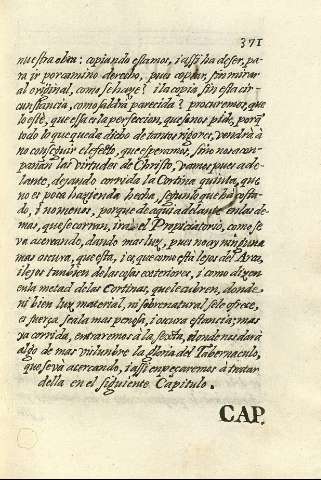 371
nuestra obra: copiando estamos, i assi ha de ser, pa-
ra ir por camino derecho, pues copiar, sin mirar
al original, como se haze? i la copia, sin esta cir-
cunstancia, como saldrà parecida? procuremos, que
lo estè, que essa es la perfeccion, que se nos pide, porq
todo lo que queda dicho de tantos rigores, vendrà à
no conseguir el efeto, que esperamos, sin nos acom-
pañan las virtudes de Christo, vamos pues ade-
lante, dejando corrida la Cortina quinta, que
no es poca hazienda hecha, segun lo que ha costa-
do, i no menos, porque de aqui adelante, en las de
mas, que se corran, irà el Propiciatorio, como se
va acercando, dando mas luz, pues no ay ninguna
mas oscura, que esta, i es, que como està lejos del Arca,
i lejos tambien de las cosas exteriores, i como dizen
en la metad de las Cortinas, que le cubren, donde
ni bien luz material, ni sobrenatural se le ofrece,
es fuerça sea la mas penosa, i oscura estancia; mas
ya corrida, entraremos à la sexta, donde nos darà
algo de mas vislumbre la gloria del Tabernaculo,
que se va acercando, i assi enpeçaremos à tratar
della en el siguiente Capitulo.
CAP.